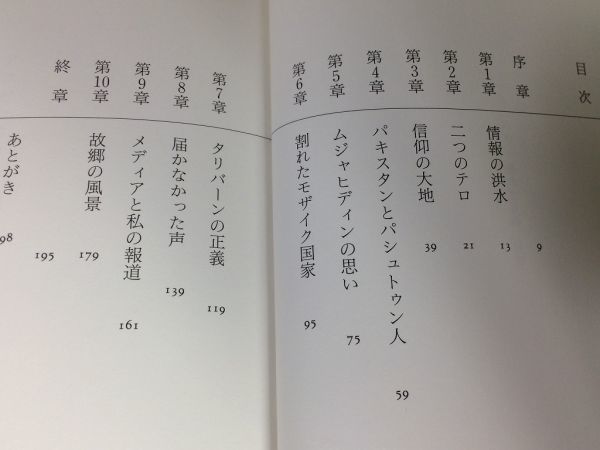 目次
序章 9
第1章 情報の洪水 13
第2章 二つのテロ 21
第3章 信仰の大地 39
第4章 パキスタンとパシュトゥン人 59
第5章 ムジャヒディンの思い 75
第6章 割れたモザイク国家 95
第7章 タリバーンの正義 119
第8章 届かなかった声 139
第9章 メディアと私の報道 161
第10章 故郷の風景 179
終章 195
あとがき 98